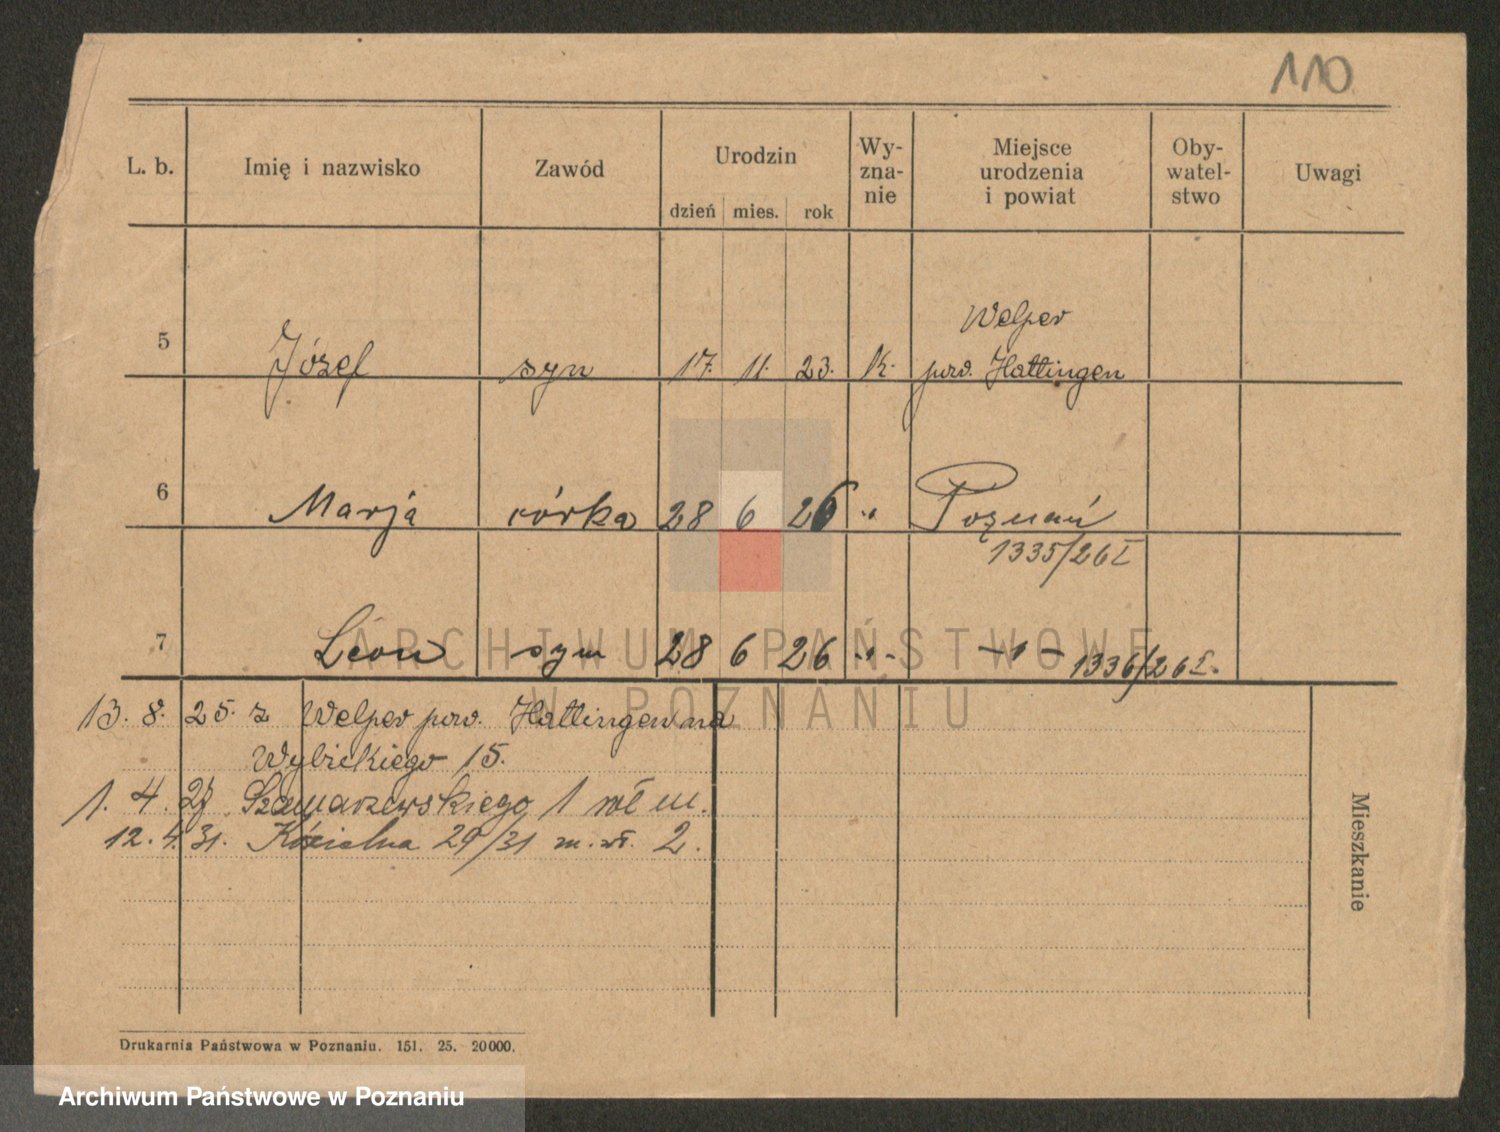 110
L. b. Imię i nazwisko Zawód Urodzin Wy- Miejsce Oby- Uwagi
zna- urodzenia watel-
nie i powiat stwo
dzień mies. rok
Welper
5 Józef syn 17. 11. 23. K. pow. Hattingen
6 Marja córka 28 6 26 " Poznań
1335/26 I
7 Léon syn 28 6 26 " - " - 1336/26 I.
ARCHIWUM PAŃSTWOWE
W POZNANIU
13. 8. 25. z Welper pow. Hattingen na
Wybickiego 15.
1. 4. 27 Szamarzewskiego 1 wł m.
12. 4. 31. Kościelna 29/31 m. wł. 2.
Mieszkanie
Drukarnia Państwowa w Poznaniu. 151. 25. 20000.
Archiwum Państwowe w Poznaniu